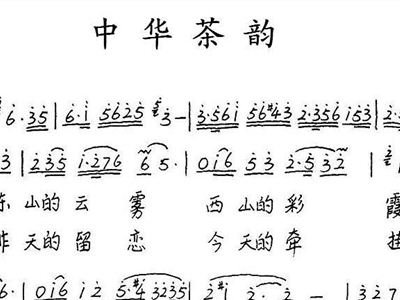 中华茶韵
6·35 | 6·i 5625 3- | 3·561 56#43 2·356 153 | 2·
3 | 235 i·276 6 5· | 0i6 53 2·532 |
山的云雾 西山的彩霞
天的留恋 今天的牵
6· | 0i6 i2 5·#4 3235 | 2·#1 2- | 3·27